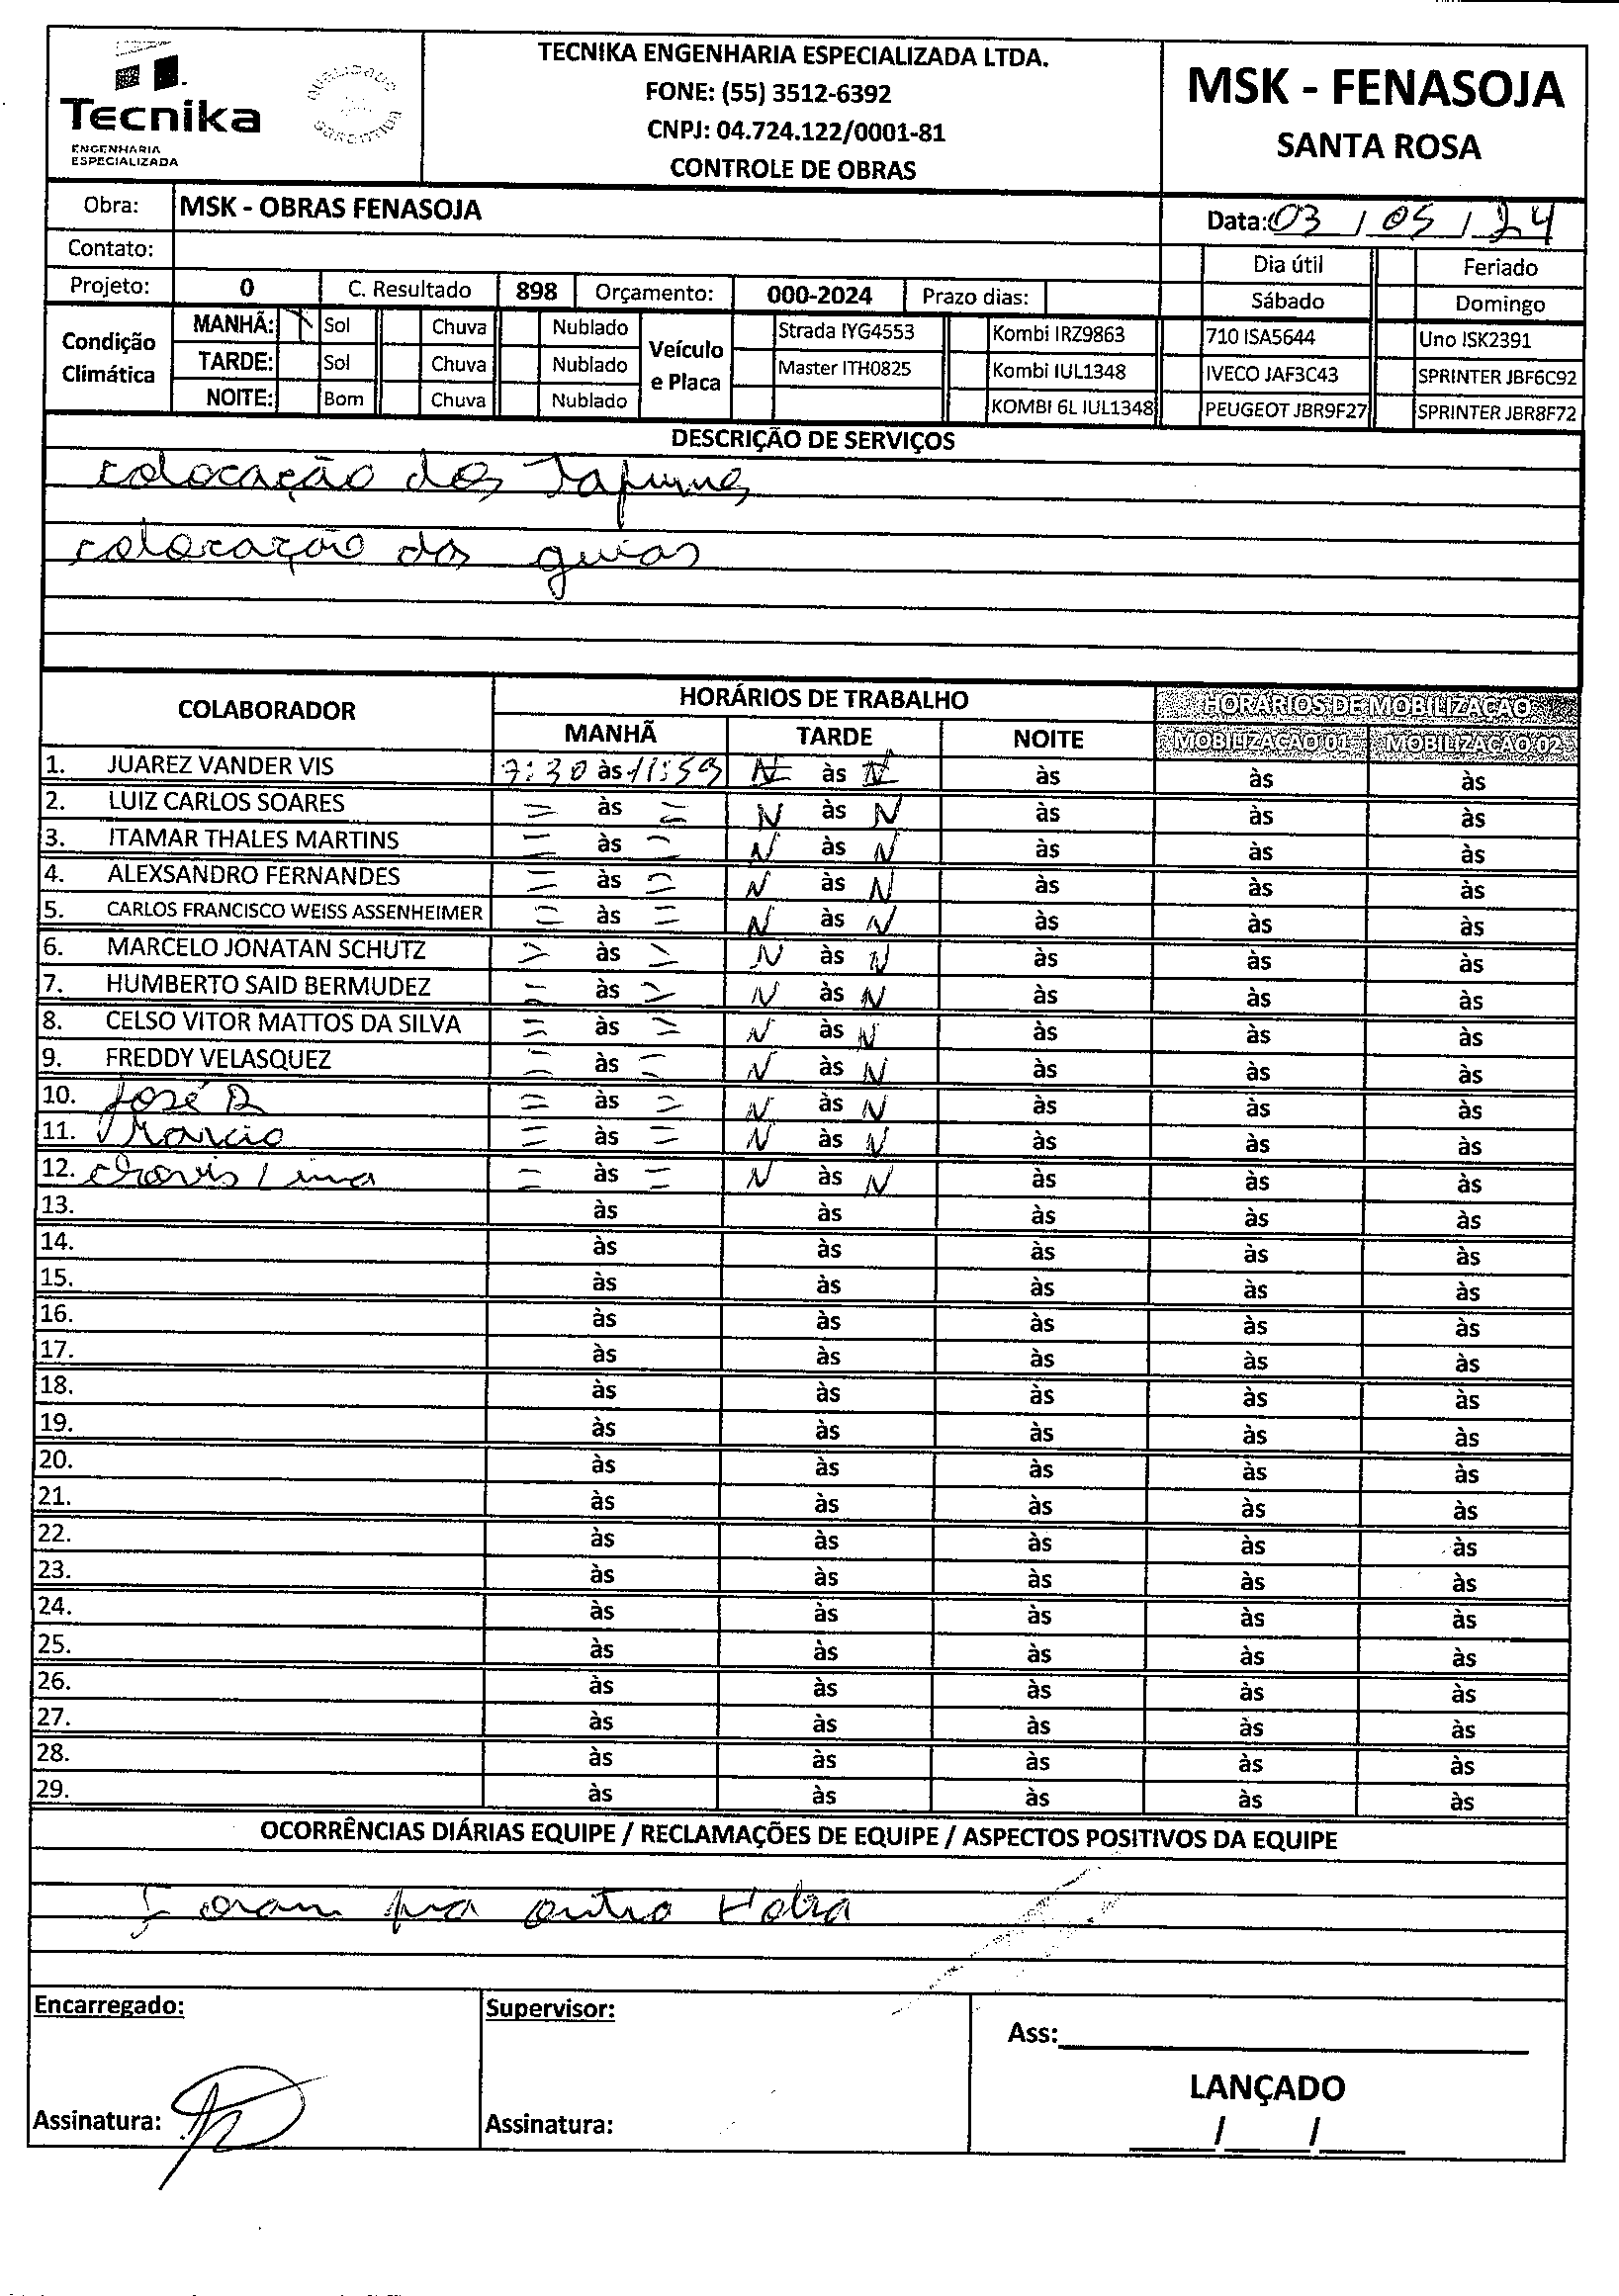 Tecnika
ENGENHARIA
ESPECIALIZADA
TECNIKA ENGENHARIA ESPECIALIZADA LTDA.
FONE: (55) 3512-6392
CNPJ: 04.724.122/0001-81
CONTROLE DE OBRAS
MSK - FENASOJA
SANTA ROSA
Obra: MSK - OBRAS FENASOJA
Data: 03 / 05 / 24
Contato:
Dia útil Feriado
Projeto: 0 C. Resultado 898 Orçamento: 000-2024 Prazo dias: Sábado Domingo
Condição Climática
MANHÃ: Sol Chuva Nublado
TARDE: Sol Chuva Nublado
NOITE: Bom Chuva Nublado
Veículo e Placa
Strada IYG4553 Kombi IRZ9863 710 ISA5644 Uno ISK2391
Master ITH0825 Kombi IUL1348 IVECO JAF3C43 SPRINTER JBF6C92
KOMBI 6L IUL1348 PEUGEOT JBR9F27 SPRINTER JBR8F72
DESCRIÇÃO DE SERVIÇOS
colocação dos Tapumes
colocação dos guias
COLABORADOR HORÁRIOS DE TRABALHO HORÁRIOS DE MOBILIZAÇÃO
MANHÃ TARDE NOITE MOBILIZAÇÃO 01 MOBILIZAÇÃO 02
1. JUAREZ VANDER VIS 7:30 às 11:59 N às N às às às
2. LUIZ CARLOS SOARES = às = N às N às às às
3. ITAMAR THALES MARTINS = às = N às N às às às
4. ALEXSANDRO FERNANDES = às = N às N às às às
5. CARLOS FRANCISCO WEISS ASSENHEIMER = às = N às N às às às
6. MARCELO JONATAN SCHUTZ = às = N às N às às às
7. HUMBERTO SAID BERMUDEZ = às = N às N às às às
8. CELSO VITOR MATTOS DA SILVA = às = N às N às às às
9. FREDDY VELASQUEZ = às = N às N às às às
10. José D = às = N às N às às às
11. Marcio = às = N às N às às às
12. Clovis Lima = às = N às N às às às
13. às às às às às
14. às às às às às
15. às às às às às
16. às às às às às
17. às às às às às
18. às às às às às
19. às às às às às
20. às às às às às
21. às às às às às
22. às às às às às
23. às às às às às
24. às às às às às
25. às às às às às
26. às às às às às
27. às às às às às
28. às às às às às
29. às às às às às
OCORRÊNCIAS DIÁRIAS EQUIPE / RECLAMAÇÕES DE EQUIPE / ASPECTOS POSITIVOS DA EQUIPE
Foram pra outra Hobra
Encarregado: Supervisor:
Ass:
LANÇADO
Assinatura: Assinatura:
/ /